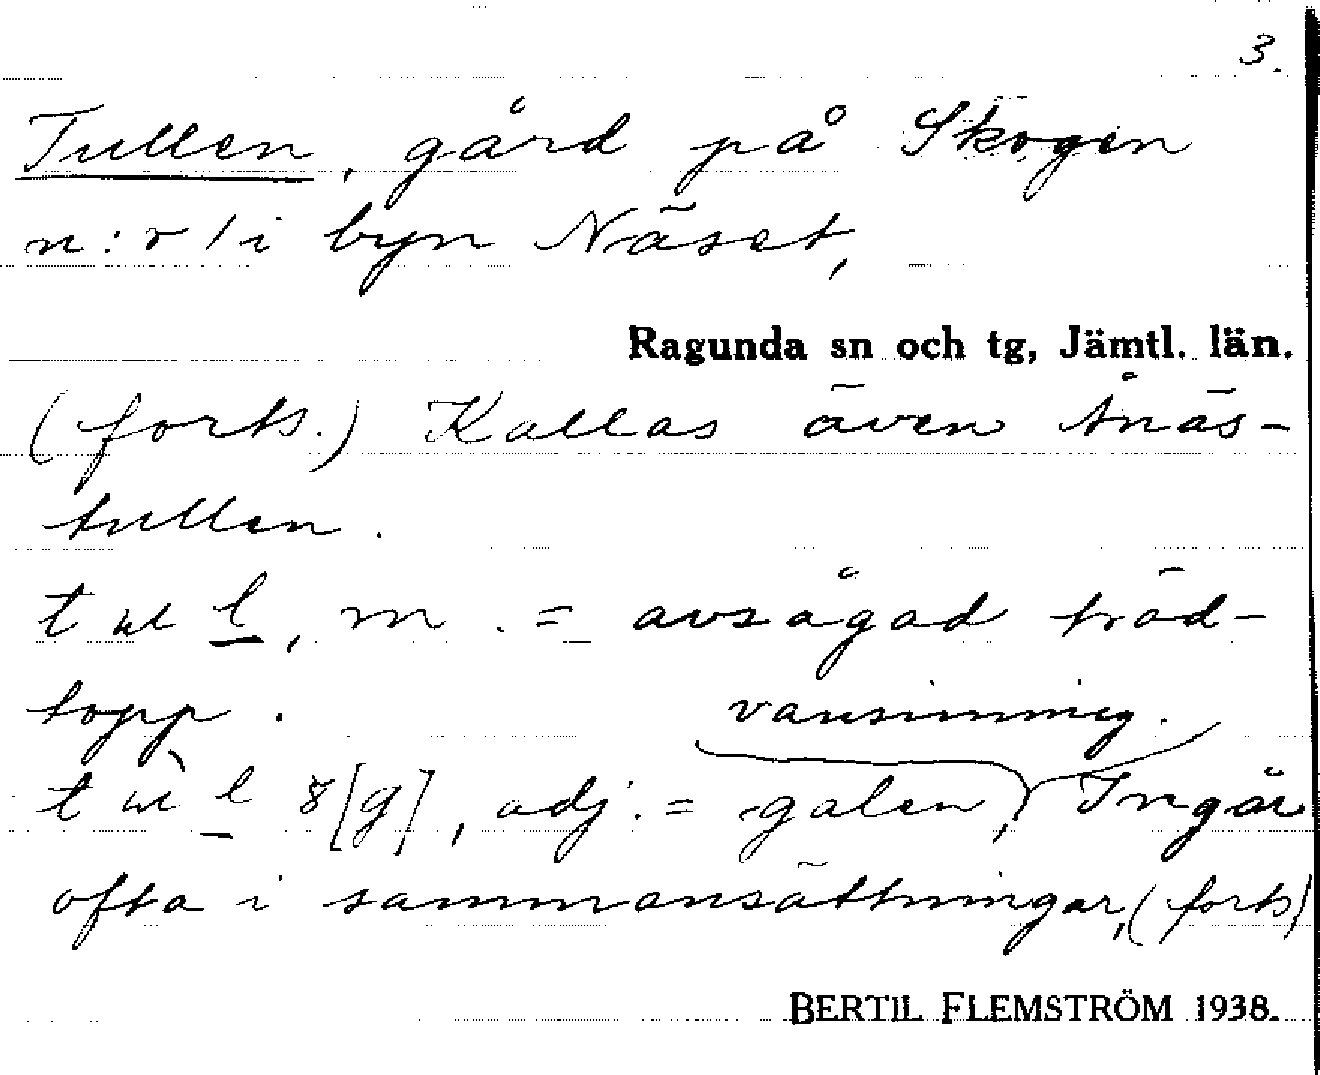 3.
Tullen, gård på Skogen
n:r 1 i byn Näset,
Ragunda sn och tg, Jämtl. län.
(forts.) Kallas ävenÅnäs-
tullen.
t ɯ l, m. = avsågad träd-
topp. vansinnig.
t ɯ̀ l 8[g], adj. = galen, Ingår
ofta i sammansättningar, (forts)
BERTIL FLEMSTRÖM 1938.